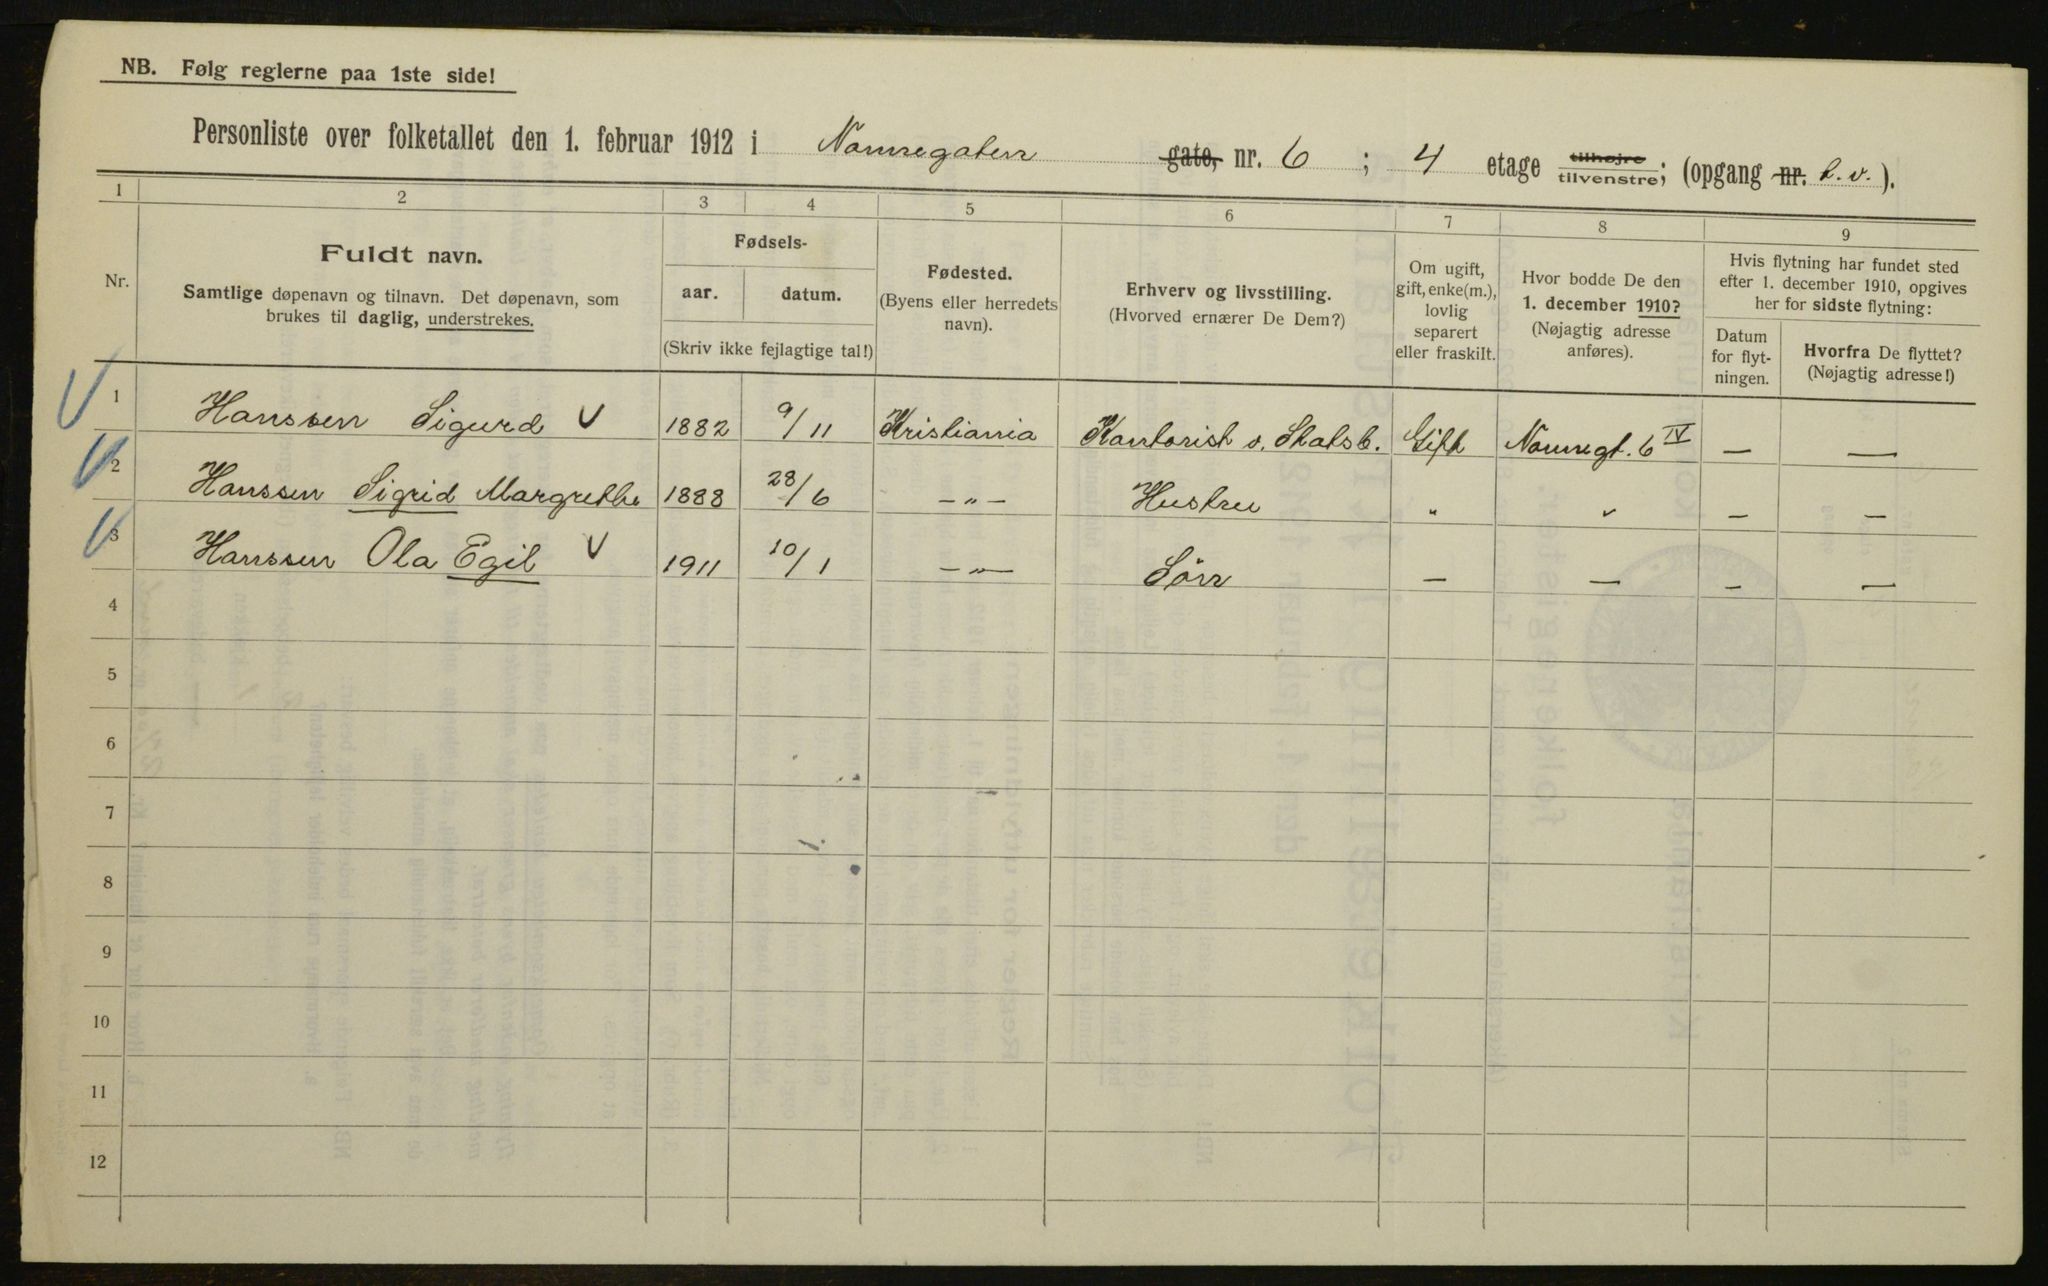 NB. Følg reglerne paa 1ste side!
Personliste over folketallet den 1. februar 1912 i Nannegaten gate, nr. 6 ; 4 etage tilhøjre tilvenstre; (opgang nr. t. v. ).
1 2 3 4 5 6 7 8 9
Nr.
Fuldt navn.
Samtlige døpenavn og tilnavn. Det døpenavn, som
brukes til daglig, understrekes.
Fødsels-
aar. datum.
(Skriv ikke fejlagtige tal!)
Fødested.
(Byens eller herredets
navn).
Erhverv og livsstilling.
(Hvorved ernærer De Dem?)
Om ugift,
gift, enke(m.),
lovlig
separert
eller fraskilt.
Hvor bodde De den
1. december 1910?
(Nøjagtig adresse
anføres).
Hvis flytning har fundet sted
efter 1. december 1910, opgives
her for sidste flytning:
Datum
for flyt-
ningen.
Hvorfra De flyttet?
(Nøjagtig adresse!)
1 Hanssen Sigurd V 1882 9/11 Kristiania Kontorist v. Statsb. Gift Nannegt. 6 IV — —
2 Hanssen Sigrid Margrethe 1888 28/6 — „ — Hustru „ „ — —
3 Hanssen Ola Egil V 1911 10/1 — „ — Sön — — — —
4
5
6
7
8
9
10
11
12